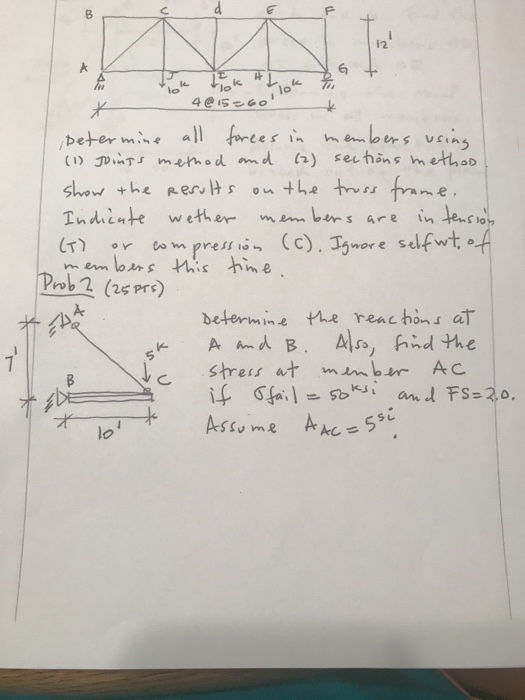 B C d E F
12'
A J I H G
10k 10k 10k
4@15=60'
Determine all forces in members using
(1) JOINTS method and (2) sections method.
show the Results on the truss frame.
Indicate wether members are in tension
(T) or compression (C). Ignore selfwt. of
members this time.
Prob 2 (25 PTS)
A
7'
5k
B
C
10'
Determine the reactions at
A and B. Also, find the
stress at member AC
if σfail = 50ksi and FS=2.0.
Assume AAC = 5si.